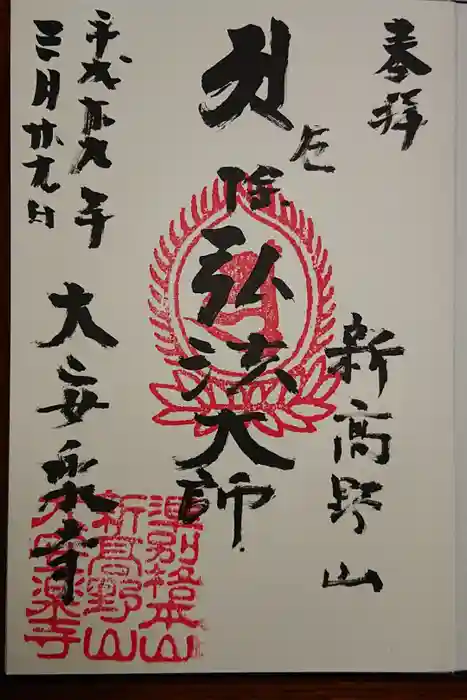 奉拝
新高野山
弘法大師
平成廿九年
三月廿九日
大安楽寺
準別格本山
新高野山
大安楽寺